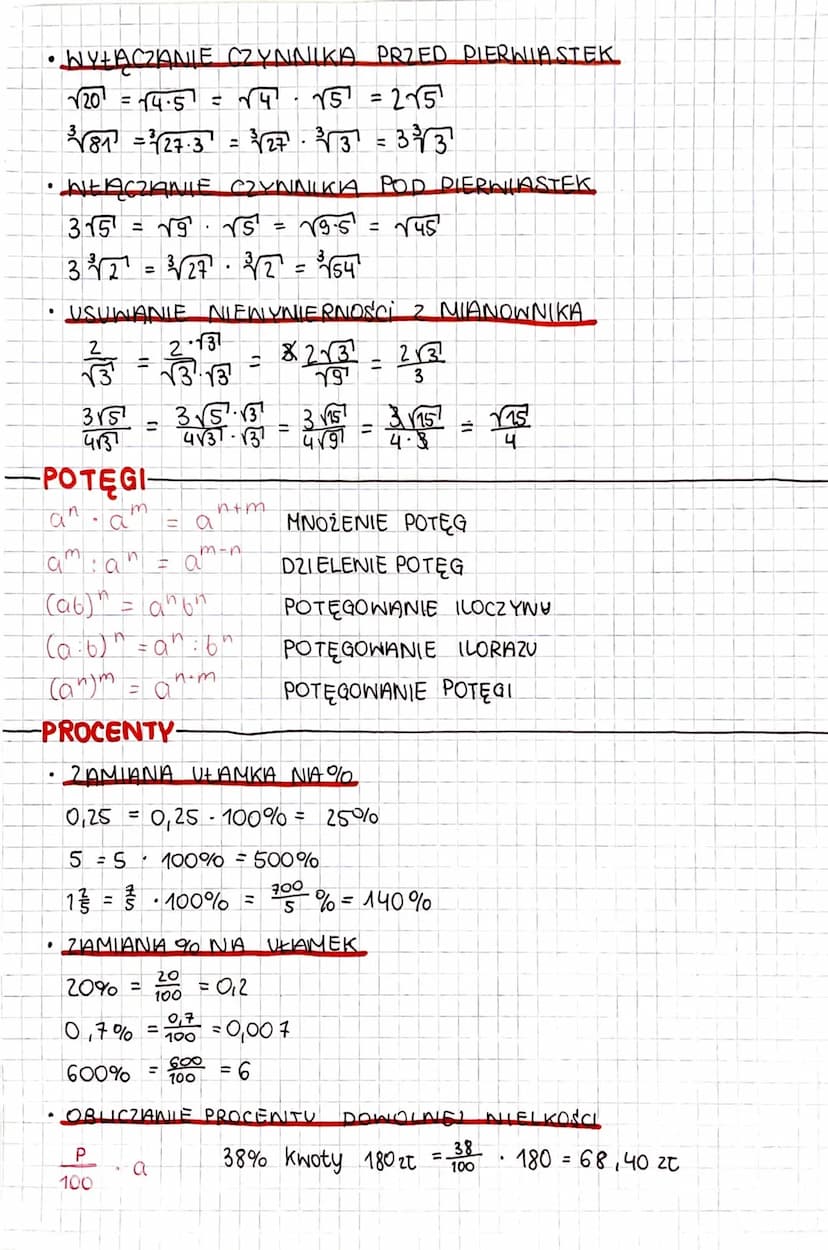 • WYŁĄCZANIE CZYNNIKA PRZED PIERWIASTEK
√20 = √4·5 = √4 · √5 = 2√5
∛81 = ∛27·3 = ∛27 · ∛3 = 3∛3
• WŁĄCZANIE CZYNNIKA POD PIERWIASTEK
3√5 = √9 · √5 = √9·5 = √45
3∛2 = ∛27 · ∛2 = ∛54
• USUWANIE NIEWYMIERNOŚCI Z MIANOWNIKA
2/√3 = 2·√3/√3·√3 = 2√3/√9 = 2√3/3
3√5/4√3 = 3√5·√3/4√3·√3 = 3√15/4√9 = 3√15/4·3 = √15/4
POTĘGI
aⁿ · aᵐ = aⁿ⁺ᵐ MNOŻENIE POTĘG
aᵐ : aⁿ = aᵐ⁻ⁿ DZIELENIE POTĘG
(ab)ⁿ = aⁿbⁿ POTĘGOWANIE ILOCZYNU
(a:b)ⁿ = aⁿ : bⁿ POTĘGOWANIE ILORAZU
(aⁿ)ᵐ = aⁿ·ᵐ POTĘGOWANIE POTĘGI
PROCENTY
• ZAMIANA UŁAMKA NA %
0,25 = 0,25 · 100% = 25%
5 = 5 · 100% = 500%
1 2/5 = 7/5 · 100% = 700/5 % = 140%
• ZAMIANA % NA UŁAMEK
20% = 20/100 = 0,2
0,7% = 0,7/100 = 0,007
600% = 600/100 = 6
• OBLICZANIE PROCENTU DOWOLNEJ WIELKOŚCI
P/100 · a 38% kwoty 180 zł = 38/100 · 180 = 68,40 zł